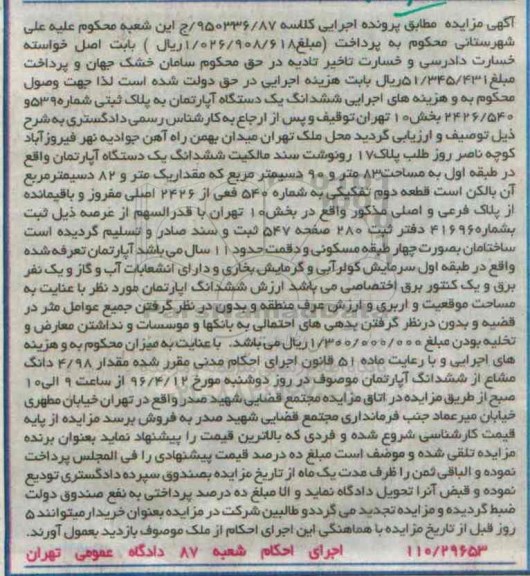 آگهی مزایده مطابق پرونده اجرایی کلاسه ۹۵۰۳۳۶/۸۷/ج این شعبه محکوم علیه علی
شهرستانی محکوم به پرداخت (مبلغ۱/۰۲۶/۹۰۸/۶۱۸ریال ) بابت اصل خواسته
خسارت دادرسی و خسارت تاخیر تادیه در حق محکوم سامان خشک جهان و پرداخت
مبلغ۵۱/۳۴۵/۴۳۱ریال بابت هزینه اجرایی در حق دولت شده است لذا جهت وصول
محکوم به و هزینه های اجرایی ششدانگ یک دستگاه آپارتمان به پلاک ثبتی شماره۵۳۹و
۲۴۲۶/۵۴۰ بخش۱۰ تهران توقیف و پس از ارجاع به کارشناس رسمی دادگستری به شرح
ذیل توصیف و ارزیابی گردید محل ملک تهران میدان بهمن راه آهن جوادیه نهر فیروزآباد
کوچه ناصر روز طلب پلاک۱۷ رونوشت سند مالکیت ششدانگ یک دستگاه آپارتمان واقع
در طبقه اول به مساحت۸۳ متر و ۹۰ دسیمتر مربع که مقداریک متر و ۸۲ دسیمترمربع
آن بالکن است قطعه دوم تفکیکی به شماره ۵۴۰ فعی از ۲۴۲۶ اصلی مفروز و باقیمانده
از پلاک فرعی و اصلی مذکور واقع در بخش۱۰ تهران با قدرالسهم از عرصه ذیل ثبت
بشماره۴۱۶۹۶۰ دفتر ثبت ۲۸۰ صفحه ۵۴۷ ثبت و سند صادر و تسلیم گردیده است
ساختامان بصورت چهار طبقه مسکونی و دقمت حدود۱۱ سال می باشد آپارتمان تعرفه شده
واقع در طبقه اول سرمایش کولرآبی و گرمایش بخاری و دارای انشعابات آب و گاز و یک نفر
برق و یک کنتور برق اختصاصی می باشد ارزش ششدانگ اپارتمان مورد نظر با عنایت به
مساحت موقعیت و اربری و ارزش عرف منطقه و بدون در نظر گرفتن جمیع عوامل مثر در
قضیه و بدون درنظر گرفتن بدهی های احتمالی به بانکها و موسسات و نداشتن معارض و
تخلیه بودن مبلغ ۱/۳۰۰/۰۰۰/۰۰۰ ریال می باشد. با عنایت به میزان محکوم به و هزینه
های اجرایی و با رعایت ماده ۵۱ قانون اجرای احکام مدنی مقرر شده مقدار ۴/۹۸ دانگ
مشاع از ششدانگ آپارتمان موصوف در روز دوشنبه مورخ ۹۶/۴/۱۲ از ساعت ۹ الی۱۰
صبح از طریق مزایده در اتاق مزایده مجتمع قضایی شهید صدر واقع در تهران خیابان مطهری
خیابان میرعماد جنب فرمانداری مجتمع قضایی شهید صدر به فروش برسد مزایده از پایه
قیمت کارشناسی شروع شده و فردی که بالاترین قیمت را پیشنهاد نماید بعنوان برنده
مزایده تلقی شده و موضف است مبلغ ده درصد قیمت پیشنهادی را فی المجلس پرداخت
نموده و الباقی ثمن را ظرف مدت یک ماه از تاریخ مزایده بصندوق سپرده دادگستری تودیع
نموده و قبض آنرا تحویل دادگاه نماید و الا مبلغ ده درصد پرداختی به نفع صندوق دولت
ضبط گردیده و مزایده تجدید می گرددو طالبین شرکت در مزایده بعنوان خریدار میتوانند ۵
روز قبل از تاریخ مزایده با هماهنگی این اجرای احکام از ملک موصوف بازدید بعمول آورند.
۱۱۰/۲۹۶۵۳ اجرای احکام شعبه ۸۷ دادگاه عمومی تهران